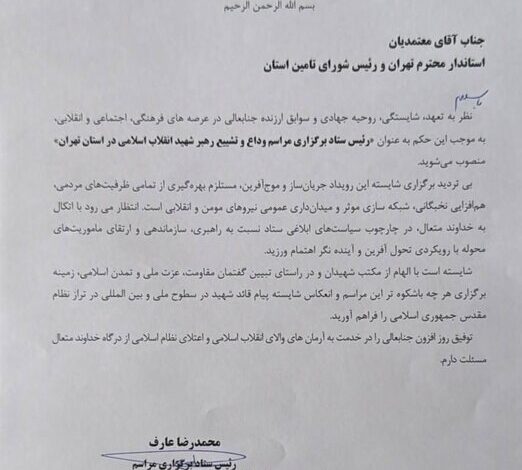 بسم الله الرحمن الرحیم
جناب آقای معتمدیان
استاندار محترم تهران و رئیس شورای تامین استان
با سلام
نظر به تعهد، شایستگی، روحیه جهادی و سوابق ارزنده جنابعالی در عرصه های فرهنگی، اجتماعی و انقلابی،
به موجب این حکم به عنوان «رئیس ستاد برگزاری مراسم وداع و تشییع رهبر شهید انقلاب اسلامی در استان تهران»
منصوب می‌شوید.
بی تردید برگزاری شایسته این رویداد جریان‌ساز و موج‌آفرین، مستلزم بهره‌گیری از تمامی ظرفیت‌های مردمی،
هم‌افزایی نخبگانی، شبکه سازی موثر و میدان‌داری عمومی نیروهای مومن و انقلابی است. انتظار می رود با اتکال
به خداوند متعال، در چارچوب سیاست‌های ابلاغی ستاد نسبت به راهبری، سازماندهی و ارتقای ماموریت‌های
محوله با رویکردی تحول آفرین و آینده نگر اهتمام ورزید.
شایسته است با الهام از مکتب شهیدان و در راستای تبیین گفتمان مقاومت، عزت ملی و تمدن اسلامی، زمینه
برگزاری هر چه باشکوه تر این مراسم و انعکاس شایسته پیام قائد شهید در سطوح ملی و بین المللی در تراز نظام
مقدس جمهوری اسلامی را فراهم آورید.
توفیق روز افزون جنابعالی را در خدمت به آرمان های والای انقلاب اسلامی و اعتلای نظام اسلامی از درگاه خداوند متعال
مسئلت دارم.
محمدرضا عارف
رئیس ستاد برگزاری مراسم